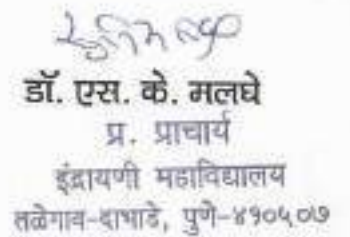 डॉ. एस. के. मलघे
प्र. प्राचार्य
इंद्रायणी महाविद्यालय
तळेगाव-दाभाडे, पुणे-४१०५०७